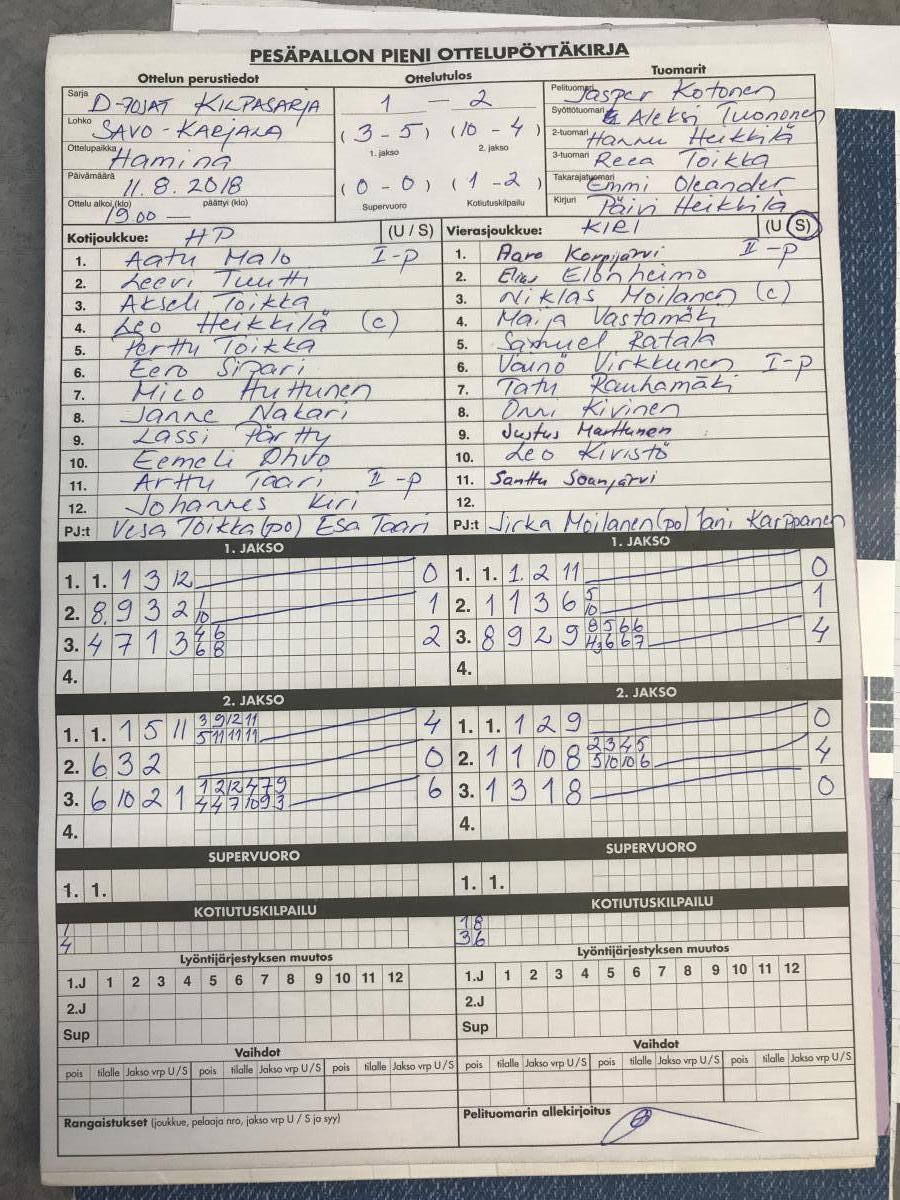 PESÄPALLON PIENI OTTELUPÖYTÄKIRJA
Ottelun perustiedot Ottelutulos Tuomarit
Sarja D-POJAT KILPASARJA
Lohko SAVO-KARJALA
Ottelupaikka Hamina
Päivämäärä 11.8.2018
Ottelu alkoi (klo) 19.00 — päättyi (klo)
1 — 2
(3-5) (10-4)
1. jakso 2. jakso
(0-0) (1-2)
Supervuoro Kotiutuskilpailu
Pelituomari Jasper Kotonen
Syöttötuomari Aleksi Tuononen
2-tuomari Hannu Heikkilä
3-tuomari Reea Toikka
Takarajatuomari Emmi Oleander
Kirjuri Päivi Heikkilä
Kotijoukkue: HP (U / S)
1. Aatu Malo I-p
2. Leevi Tuutti
3. Akseli Toikka
4. Leo Heikkilä (c)
5. Perttu Toikka
6. Eero Sipari
7. Mico Huttunen
8. Janne Nakari
9. Lassi Pärtty
10. Eemeli Ohvo
11. Arttu Taari II-p
12. Johannes Kiri
PJ:t Vesa Toikka (po) Esa Taari
Vierasjoukkue: KIRI (U / S)
1. Aaro Korpijärvi II-p
2. Elias Elonheimo
3. Niklas Moilanen (c)
4. Maija Vastamäki
5. Samuel Ratala
6. Väinö Virkkunen I-p
7. Tatu Rauhamäki
8. Onni Kivinen
9. Justus Marttunen
10. Leo Kivistö
11. Santtu Soanjärvi
12.
PJ:t Jirka Moilanen (po) Jani Karppanen
1. JAKSO
1. 1. 1 3 12 0
2. 8. 9 3 2 1 1
10
3. 4 7 1 3 4 6 2
6 8
4.
1. JAKSO
1. 1. 1. 2 11 0
2. 1 1 3 6 5 1
10
3. 8 9 2 9 8 5 6 6 4
4 3 6 6 7
4.
2. JAKSO
1. 1. 1 5 11 3 9 12 11 4
5 11 11 11
2. 6 3 2 0
3. 6 10 2 1 1 2 12 4 7 9 6
4 4 7 10 9 3
4.
2. JAKSO
1. 1. 1 2 9 0
2. 1 1 10 8 2 3 4 5 4
5 10 10 6
3. 1 3 1 8 0
4.
SUPERVUORO
1. 1.
SUPERVUORO
1. 1.
KOTIUTUSKILPAILU
1
4
KOTIUTUSKILPAILU
1 8
3 6
Lyöntijärjestyksen muutos
1.J 1 2 3 4 5 6 7 8 9 10 11 12
2.J
Sup
Lyöntijärjestyksen muutos
1.J 1 2 3 4 5 6 7 8 9 10 11 12
2.J
Sup
Vaihdot
pois tilalle Jakso vrp U/S pois tilalle Jakso vrp U/S pois tilalle Jakso vrp U/S
Vaihdot
pois tilalle Jakso vrp U/S pois tilalle Jakso vrp U/S pois tilalle Jakso vrp U/S
Rangaistukset (joukkue, pelaaja nro, jakso vrp U / S ja syy)
Pelituomarin allekirjoitus